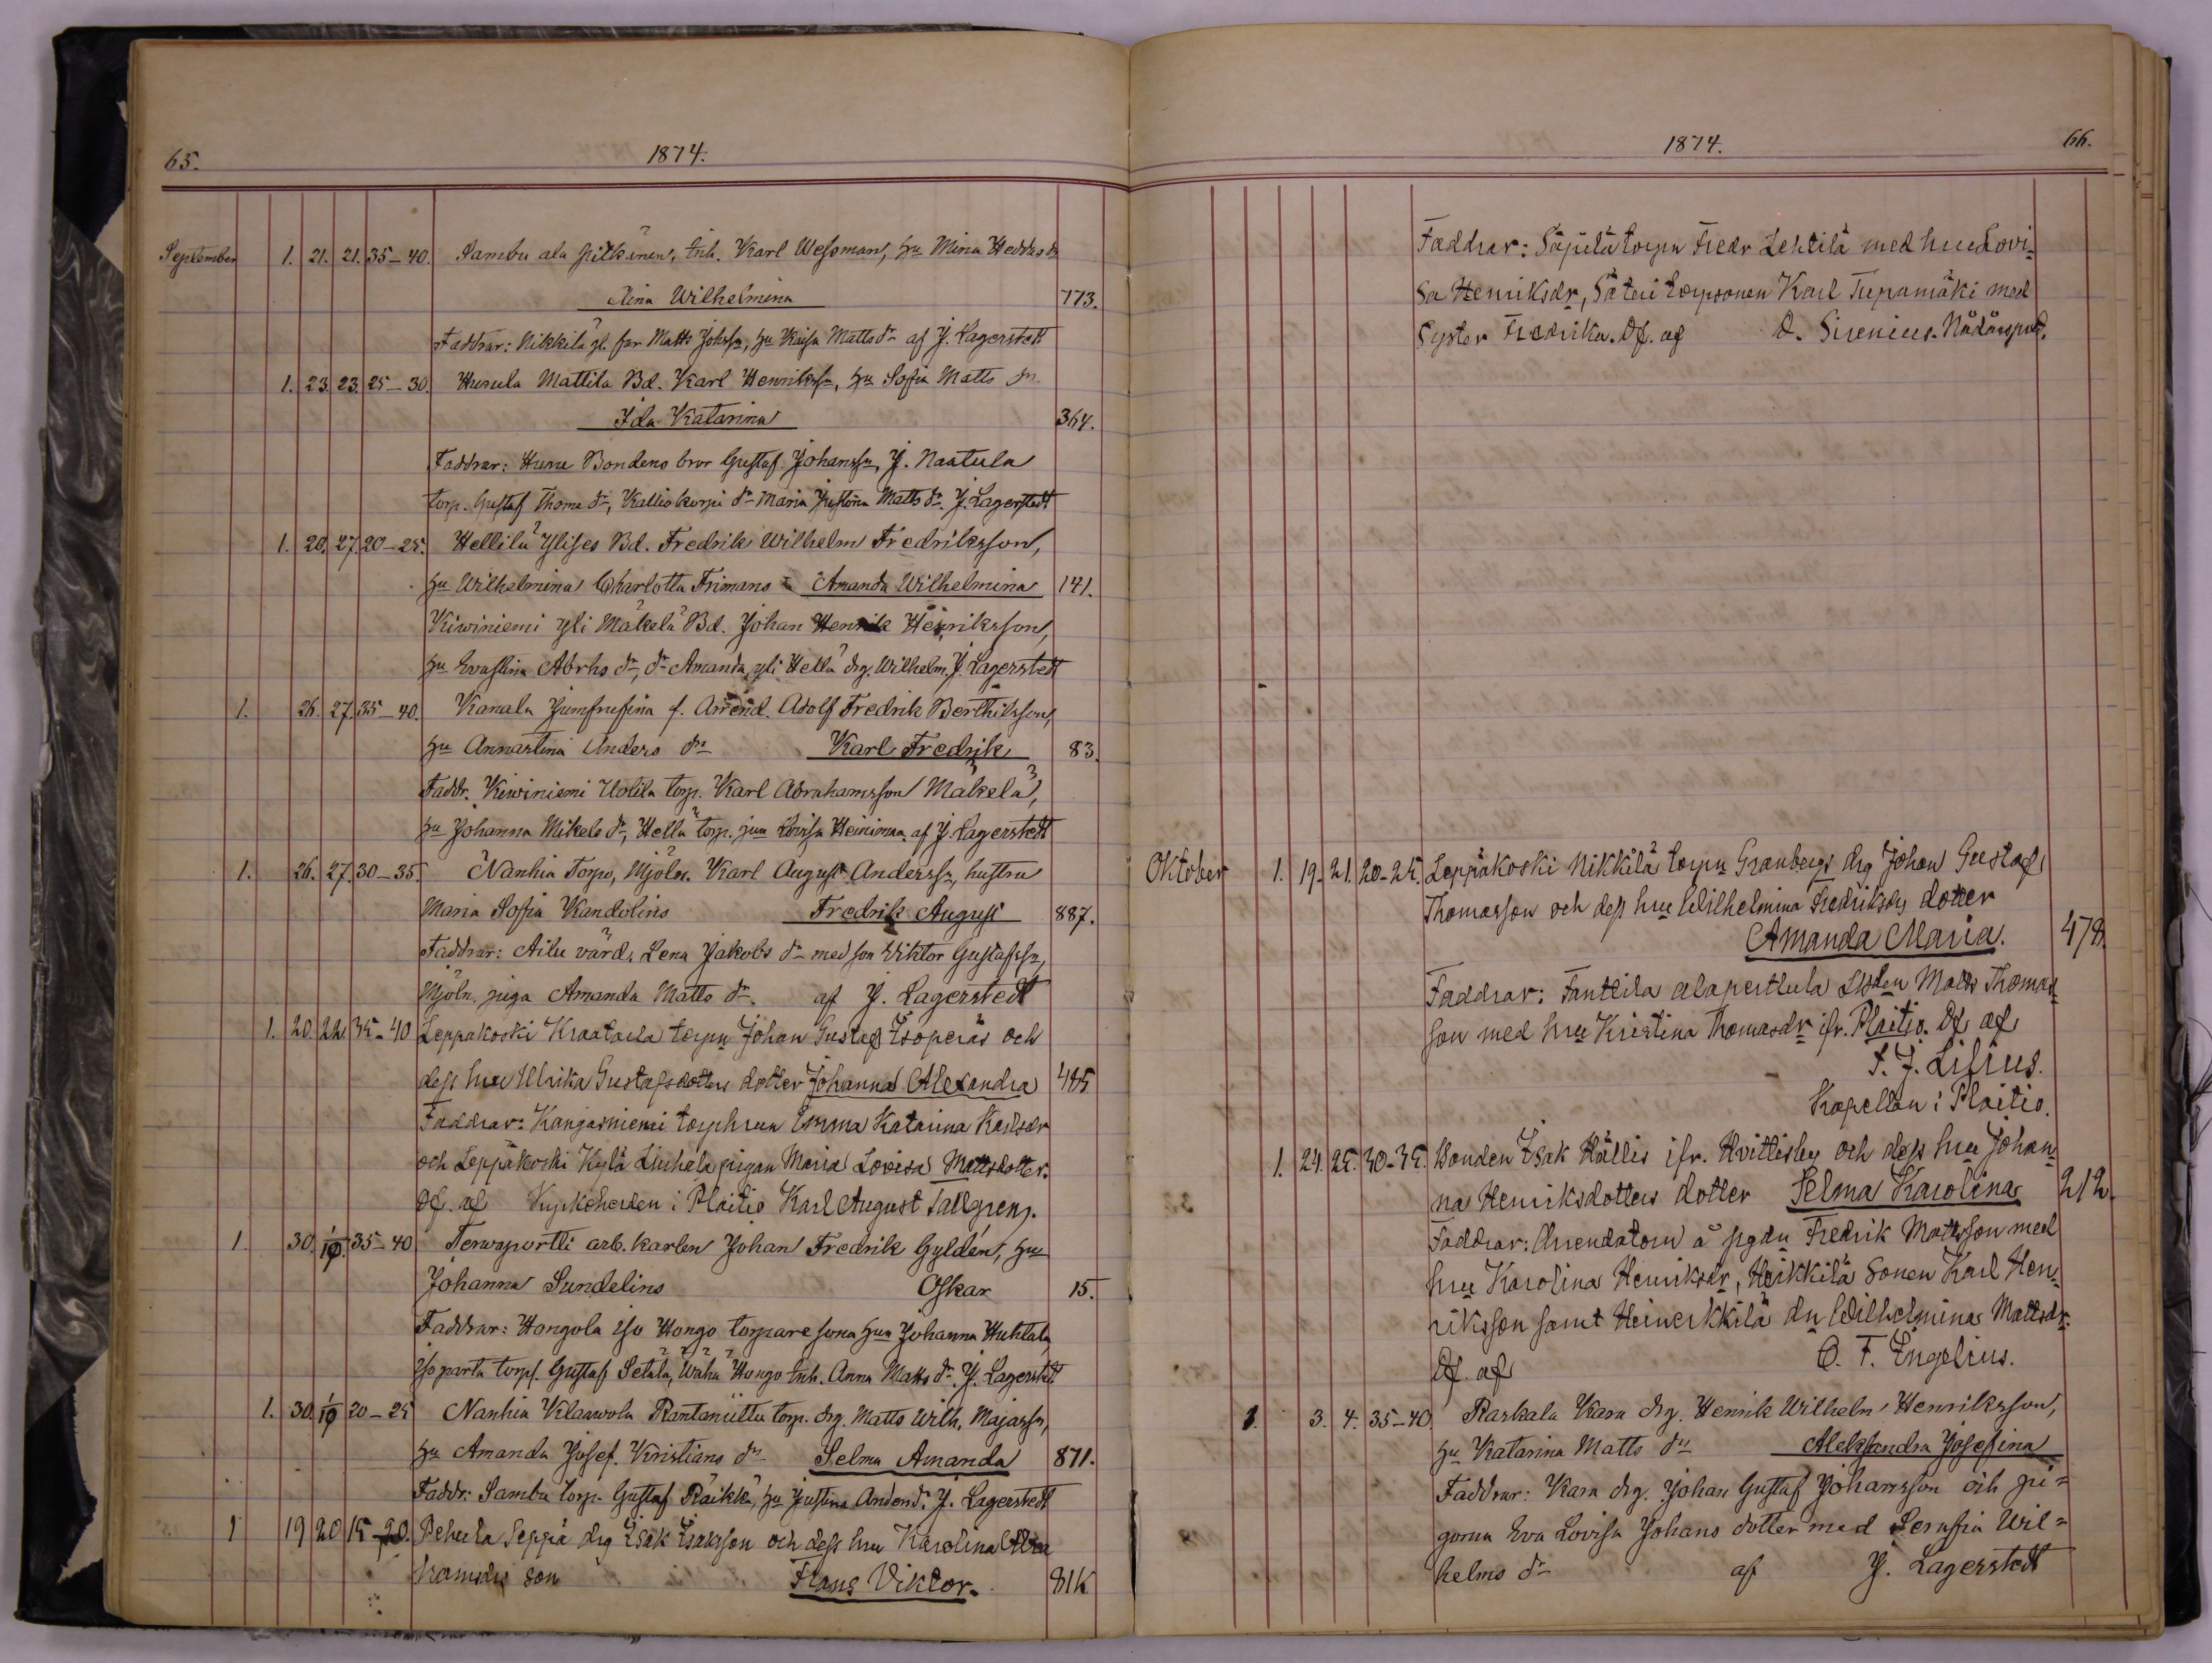 65.
1874.
September 1. 21. 21. 35-40. Sambu ala Pitkänen, inh. Karl Wessman, hu Mina Hedda
Aina Wilhelmina 773.
Faddrar: Nikkilä gl. far Matts Johssn, hu Kaisa Matts dr af J. Lagerstedt
1. 23. 23. 25-30. Hurula Mattila Bd. Karl Henrikssn, hu Sofia Matts dr
Ida Katarina 364.
Faddrar: Huru Bondens bror Gustaf Johanssn, J. Naatula
torp. Gustaf Thoms dr, Kalliokorpi dr Maria Justina Matts dr. J. Lagerstedt
1. 20. 27. 20-25. Hellilä Ylises Bd. Fredrik Wilhelm Fredriksson,
hu Wilhelmina Charlotta Frimans Amanda Wilhelmina 141.
Kiwiniemi yli Mäkelä Bd. Johan Henrik Henriksson,
hu Evastina Abrhs dr, dr Amanda, yli Hellä drg. Wilhelm. J. Lagerstedt
1. 26. 27. 35-40. Kanala f. Arrend. Adolf Fredrik Berthilsson,
hu Annastina Anders dr Karl Fredrik 83.
Faddr. Kiwiniemi Uotila torp. Karl Abrahamsson Mäkelä,
hu Johanna Mikels dr, Hellä torp. Lovisa Heinimaa af J. Lagerstedt
1. 26. 27. 30-35. Nanhia Torpo, Mjöln. Karl August Anderssn, hustru
Maria Sofia Kandolins Fredrik August 887.
Faddrar: Ailu värd. Lena Jakobs dr med son Viktor Gustafssn,
Mjöln. piga Amanda Matts dr. af J. Lagerstedt
1. 20. 22. 35-40 Leppäkoski Kraataila torpn Johan Gustaf Isoperäs och
dess hru Ulrika Gustafsdotters dotter Johanna Alexandra 485
Faddrar: Kangasniemi torphrun Emma Katarina Karlsdr
och Leppäkoski Kylä Liuhala pigan Maria Lovisa Mattsdotter.
Df. af Kyrkoherden i Plaitis Karl August Tallgren.
1. 30. 1/10. 35-40 Terwaportti arb. karlen Johan Fredrik Gyldén, hu
Johanna Sundelins Oskar 15.
Faddrar: Hongola iso Hongo torpare sona hua Johanna Huhtala,
iso torpf. Gustaf Setälä, Wähä Hongo inh. Anna Matts dr. J. Lagerstedt
1. 30. 1/10 20-25 Nanhia Klaawola Rantaniittu torp. drg. Matts Wilh. Majassn,
hu Amanda Josef. Kristians dr Selma Amanda 871.
Faddr: Sambu torp. Gustaf Räikkä, hu Justina Anders dr. J. Lagerstedt
1 19 20 15-20. Pehula Seppä drg Isak Isaksson och dess hru Karolina Abra
hamsdrs son Frans Viktor. 816
1874.
66.
Faddrar: Säpilä torpn Fredr Lehtilä med hru Lovi-
sa Henriksdr, Säteri torpsonen Karl Tupamäki med
Syster Fredrika. Df. af O. Sirenius. Nådårspred.
Oktober 1. 19. 21. 20-25. Leppäkoski Nikkilä torpn Granbergs drg Johan Gustaf
Thomasson och dess hru Wilhelmina Fredriksdrs dotter
Amanda Maria. 478.
Faddrar: Fanttila alaperttula Matts Thomas-
son med hru Kristina Thomasdr ifr. Plaitis. Df af
F. J. Lilius.
Kapellan i Plaitis.
1. 24. 25. 30-35. Bonden Isak Hällis ifr. Hvittisby och dess hru Johan-
na Henriksdotters dotter Selma Karolina 212.
Faddrar: Arrendatorn å Fredrik Mattsson med
hru Karolina Henriksdr, Heikkilä Sonen Karl Hen-
riksson samt Heinerikkilä dn Wilhelmina Mattsdr.
Df. af O. F. Engelius.
1. 3. 4. 35-40. Raskala Kara drg. Henrik Wilhelm Henriksson,
hu Katarina Matts dr Aleksandra Josefina
Faddrar: Kara drg. Johan Gustaf Johansson och pi-
gorna Eva Lovisa Johans dotter med Serafia Wil-
helms dr af J. Lagerstedt